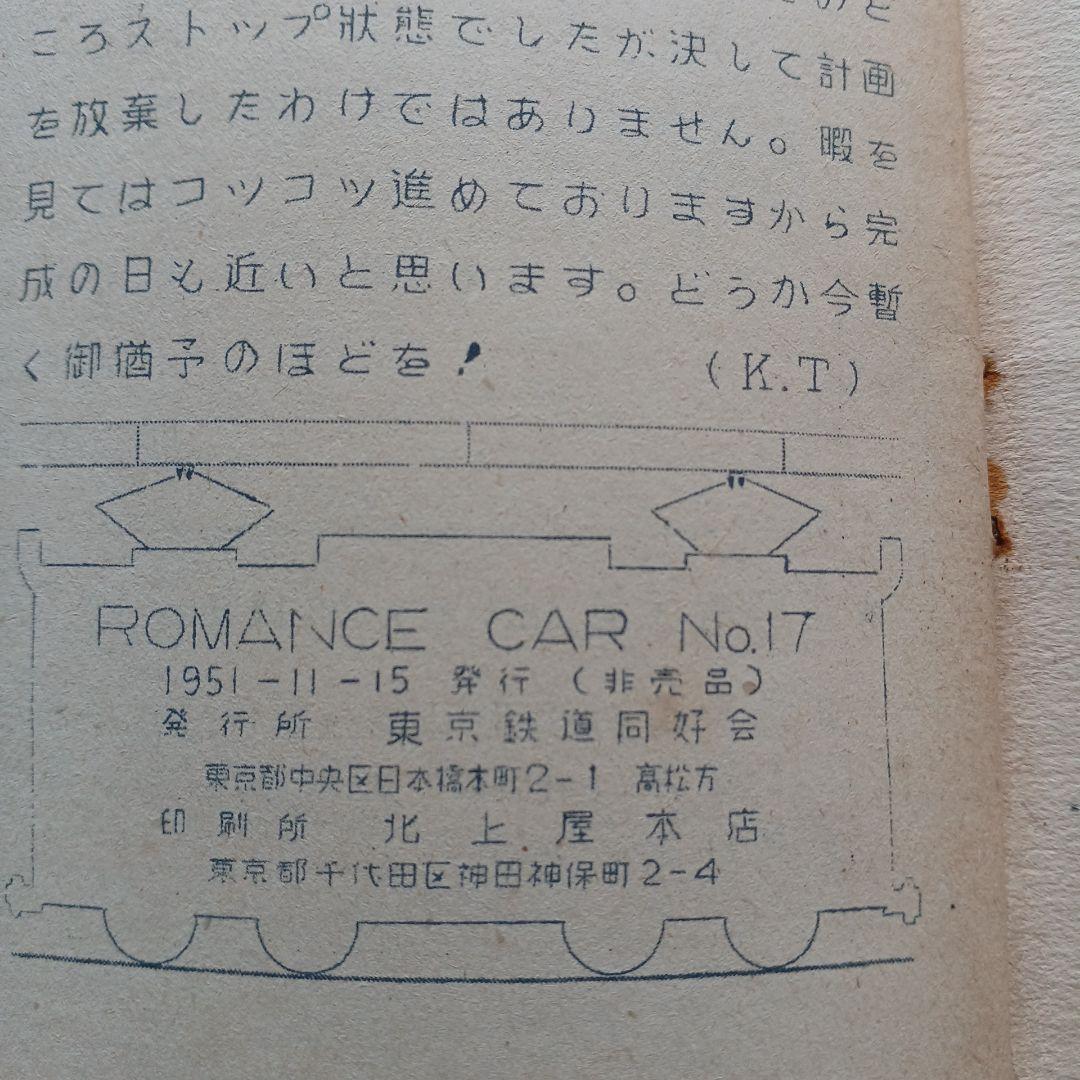 のと
ころストップ狀態でしたが決して計画
を放棄したわけではありません。暇を
見てはコツコツ進めておりますから完
成の日も近いと思います。どうか今暫
く御猶予のほどを!　(K.T)
ROMANCE CAR No.17
1951-11-15 発行 (非売品)
発行所 東京鉄道同好会
東京都中央区日本橋本町2-1 高松方
印刷所 北上屋本店
東京都千代田区神田神保町2-4